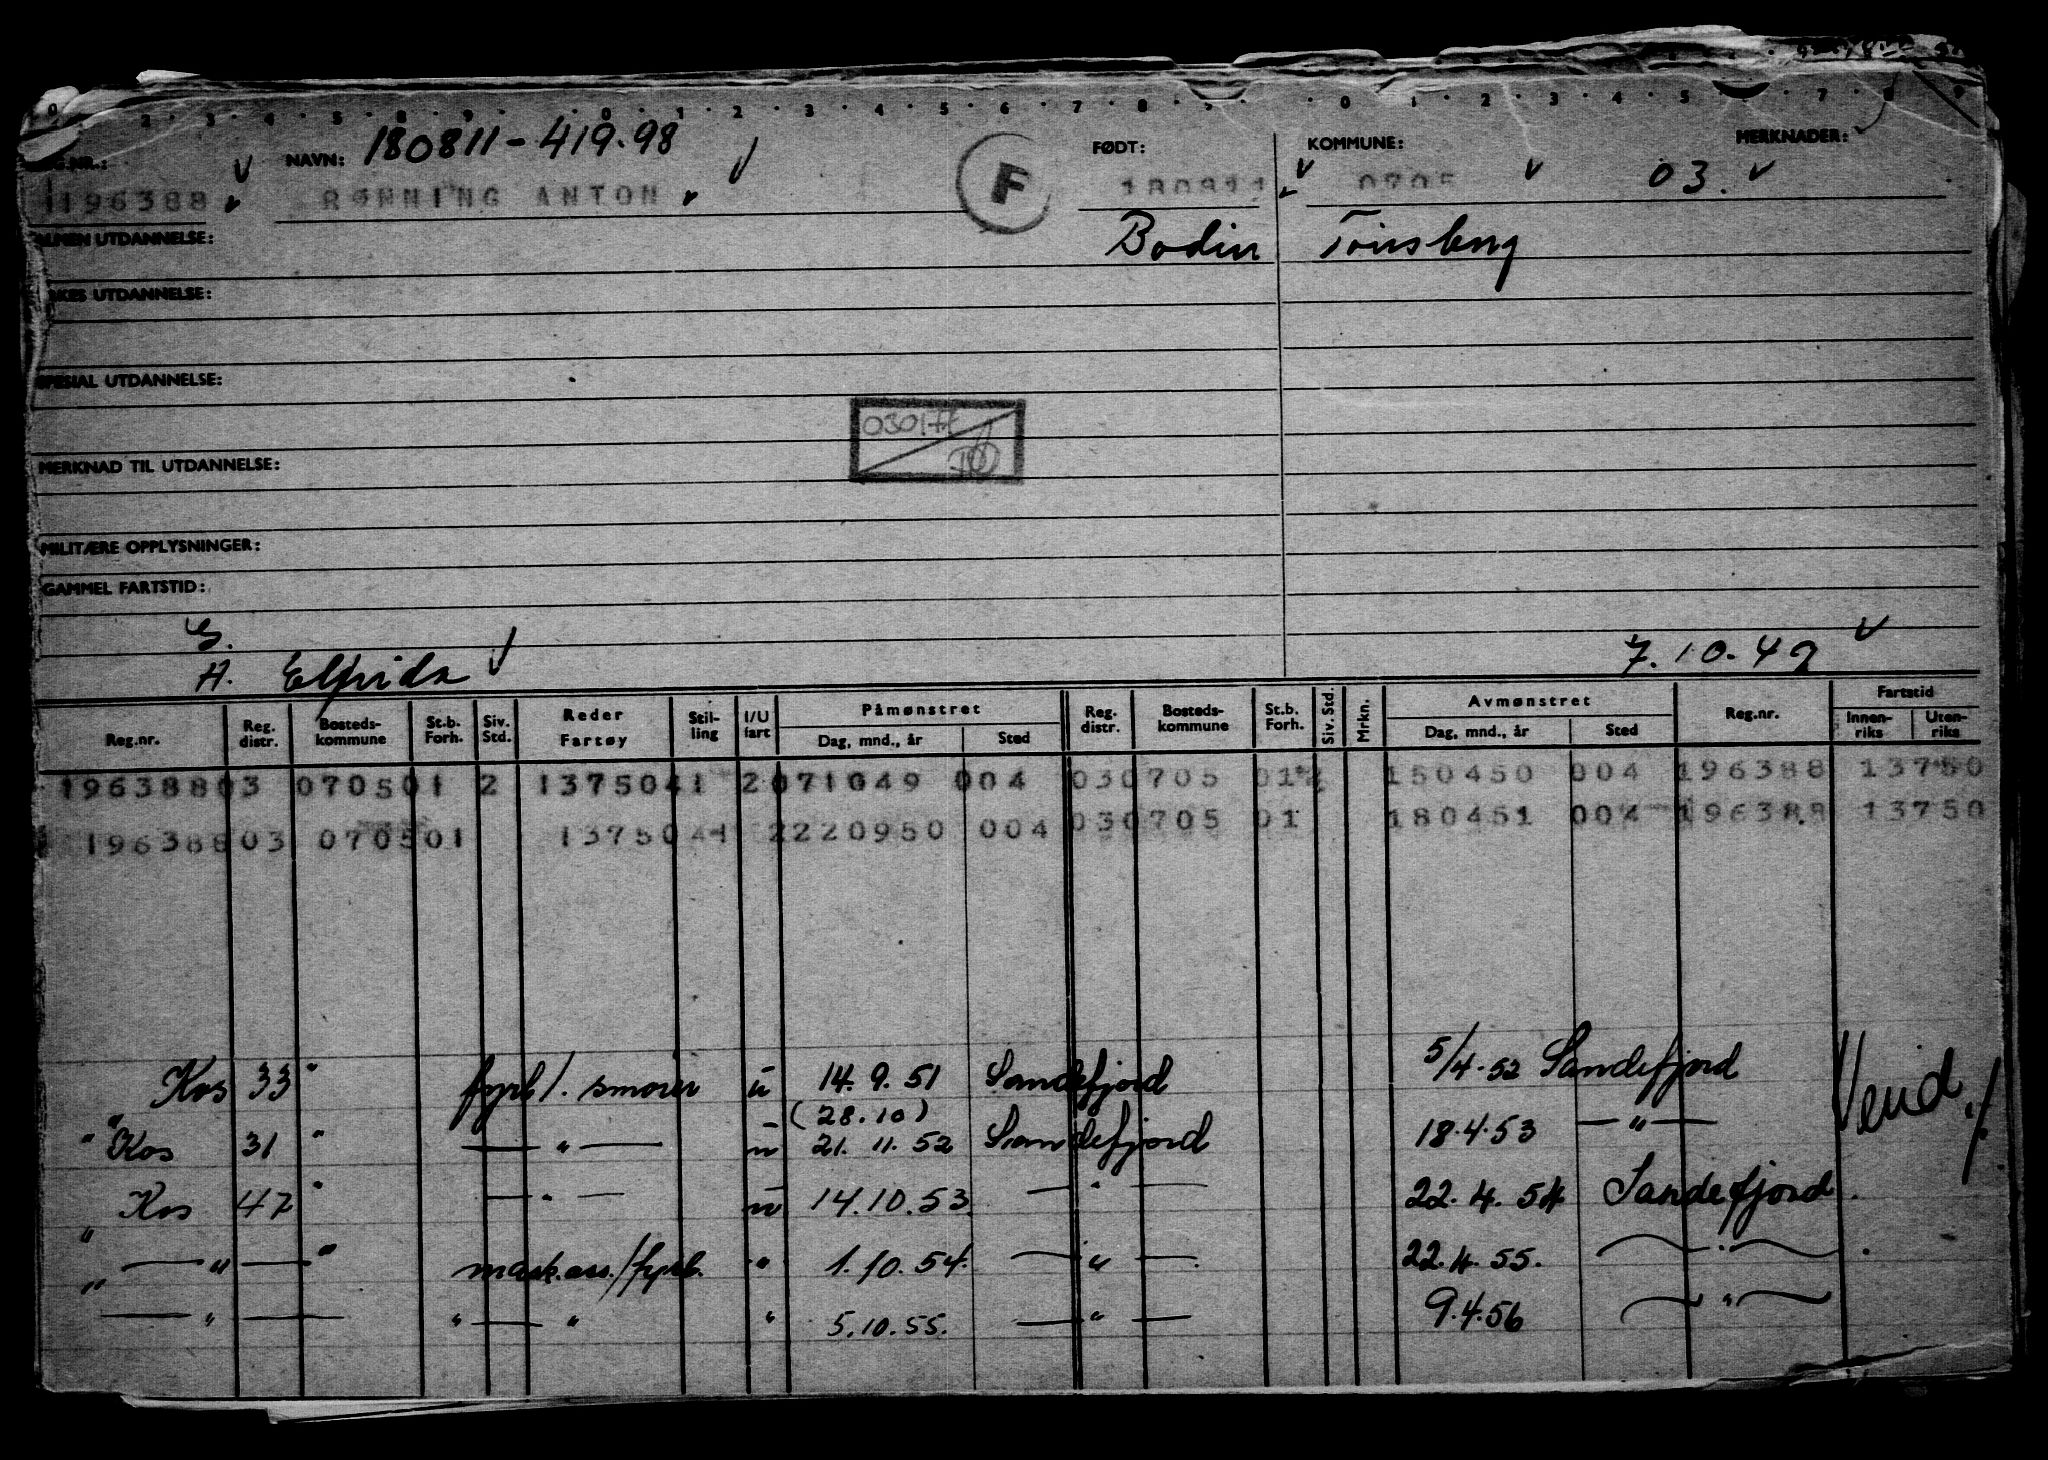 180811-419.98
NAVN: FØDT: KOMMUNE: MERKNADER:
196388 RØNNING ANTON F 180811 0705 03.
UTDANNELSE: Bodin Tønsberg
UTDANNELSE:
SPESIAL UTDANNELSE:
MERKNAD TIL UTDANNELSE:
MILITÆRE OPPLYSNINGER:
GAMMEL FARTSTID:
G.
H. Elfrida 7.10.49
Reg.nr. Reg. distr. Bosteds- kommune St.b. Forh. Siv. Std. Reder Fartøy Stil- ling I/U fart Påmønstret Dag, mnd., år Sted Reg. distr. Bosteds- kommune St.b. Forh. Siv. Std. Mrkn. Avmønstret Dag, mnd., år Sted Reg.nr. Fartstid Innen- riks Uten- riks
196388 03 0705 01 2 1375041 2 071049 004 03 0705 01 150450 004 196388 13750
196388 03 0705 01 1375041 2 220950 004 03 0705 01 180451 004 196388 13750
Kos 33 " fyrb/. smører u 14.9.51 Sandefjord 5/4.52 Sandefjord Vend./.
(28.10)
" Kos 31 " — " — u 21.11.52 Sandefjord 18.4.53 — " —
" Kos 47 " — " — u 14.10.53. — " — 22.4.54 Sandefjord.
" — " — " mask.ass./fyrb. " 1.10.54. — " — 22.4.55. — " —
" — " — " — " " 5.10.55. — " — 9.4.56 — " —